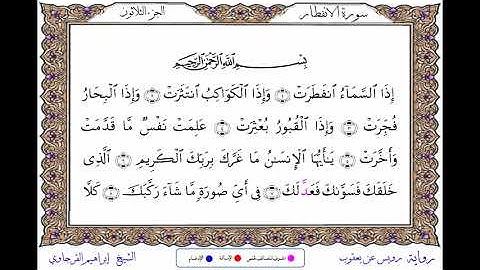 سورة الانفطار
الجزء الثلاثون
بِسْمِ ٱللَّهِ ٱلرَّحْمَٰنِ ٱلرَّحِيمِ
إِذَا ٱلسَّمَآءُ ٱنفَطَرَتْ ١ وَإِذَا ٱلْكَوَاكِبُ ٱنتَثَرَتْ ٢ وَإِذَا ٱلْبِحَارُ
فُجِّرَتْ ٣ وَإِذَا ٱلْقُبُورُ بُعْثِرَتْ ٤ عَلِمَتْ نَفْسٌ مَّا قَدَّمَتْ
وَأَخَّرَتْ ٥ يَٰٓأَيُّهَا ٱلْإِنسَٰنُ مَا غَرَّكَ بِرَبِّكَ ٱلْكَرِيمِ ٦ ٱلَّذِى
خَلَقَكَ فَسَوَّىٰكَ فَعَدَّلَكَ ٧ فِىٓ أَىِّ صُورَةٍ مَّا شَآءَ رَكَّبَكَ ٨ كَلَّا
رواية رويس عن يعقوب
الشيخ إبراهيم الفرجاوي